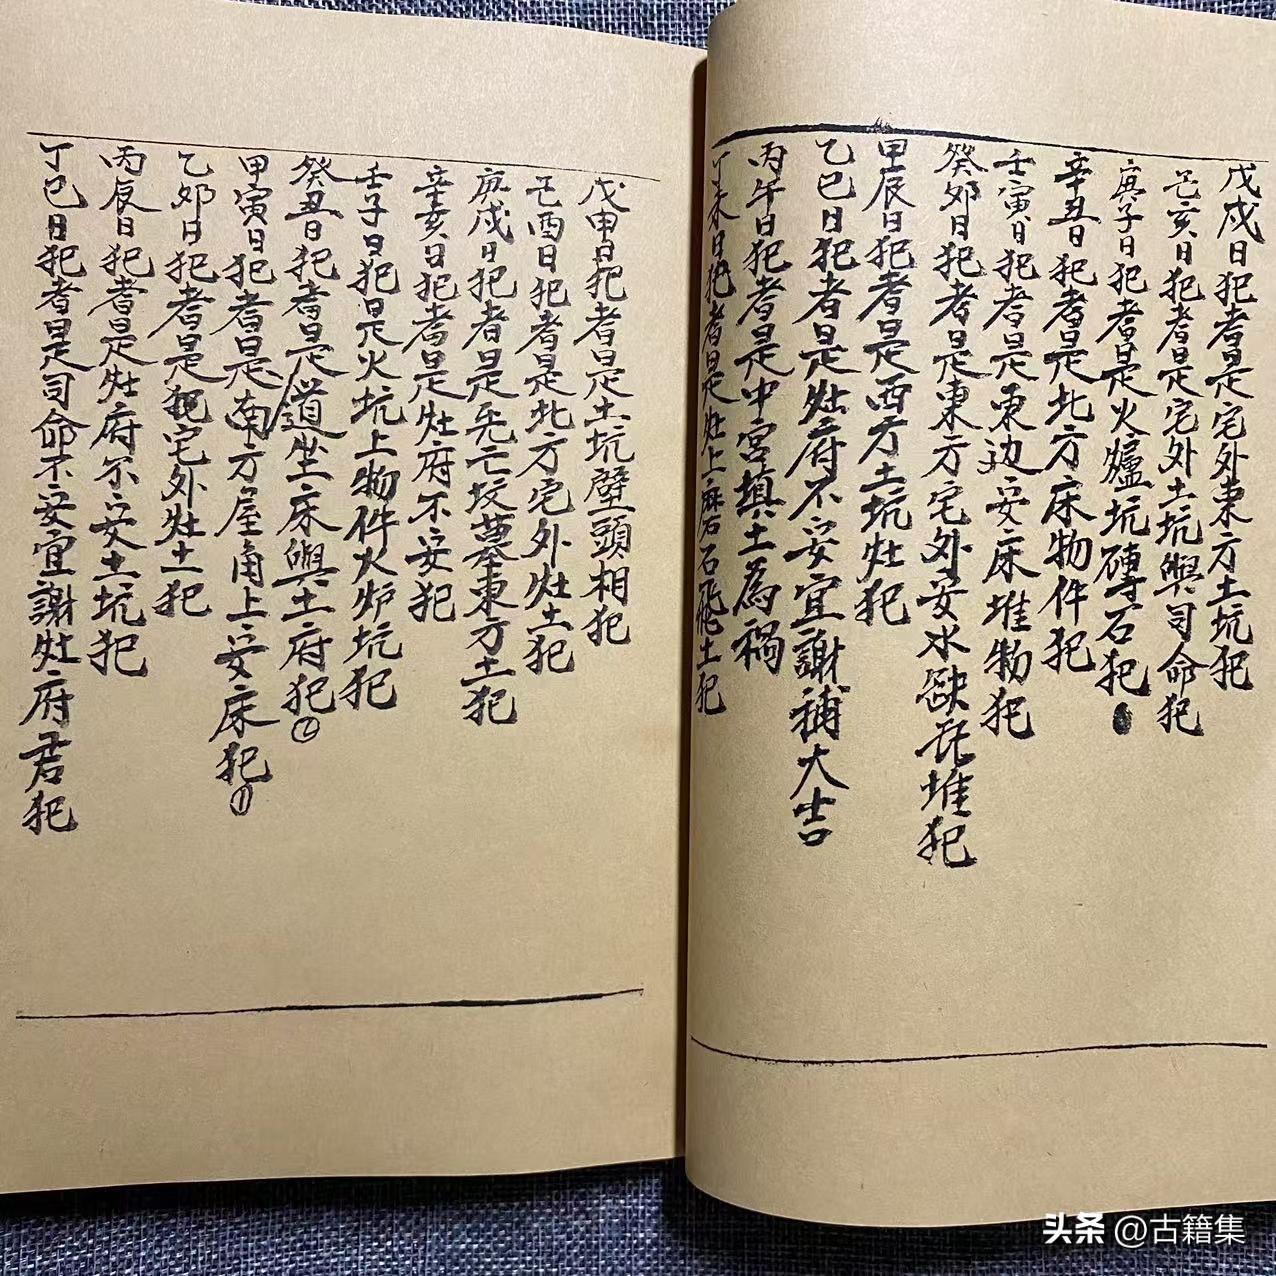 戊戌日犯者是宅外東方土坑犯
己亥日犯者是宅外土坑與司命犯
庚子日犯者是火爐坑磚石犯
辛丑日犯者是北方床物件犯
壬寅日犯者是東边安床堆物犯
癸夘日犯者是東方宅外安水缺瓦堆犯
甲辰日犯者是西方土坑灶犯
乙巳日犯者是灶府不安宜謝補大吉
丙午日犯者是中宮填土為禍
丁未日犯者是灶上磨石石飛土犯
戊申日犯者是土坑壁頭相犯
己酉日犯者是北方宅外灶土犯
庚戌日犯者是先亡坟墓東方土犯
辛亥日犯者是灶府不安犯
壬子日犯是火坑上物件火炉坑犯
癸丑日犯者是道坐床與土府犯②
甲寅日犯者是南方屋角上安床犯①
乙夘日犯者是犯宅外灶土犯
丙辰日犯者是灶府不安土坑犯
丁巳日犯者是司命不安宜謝灶府君犯
头条 @古籍集